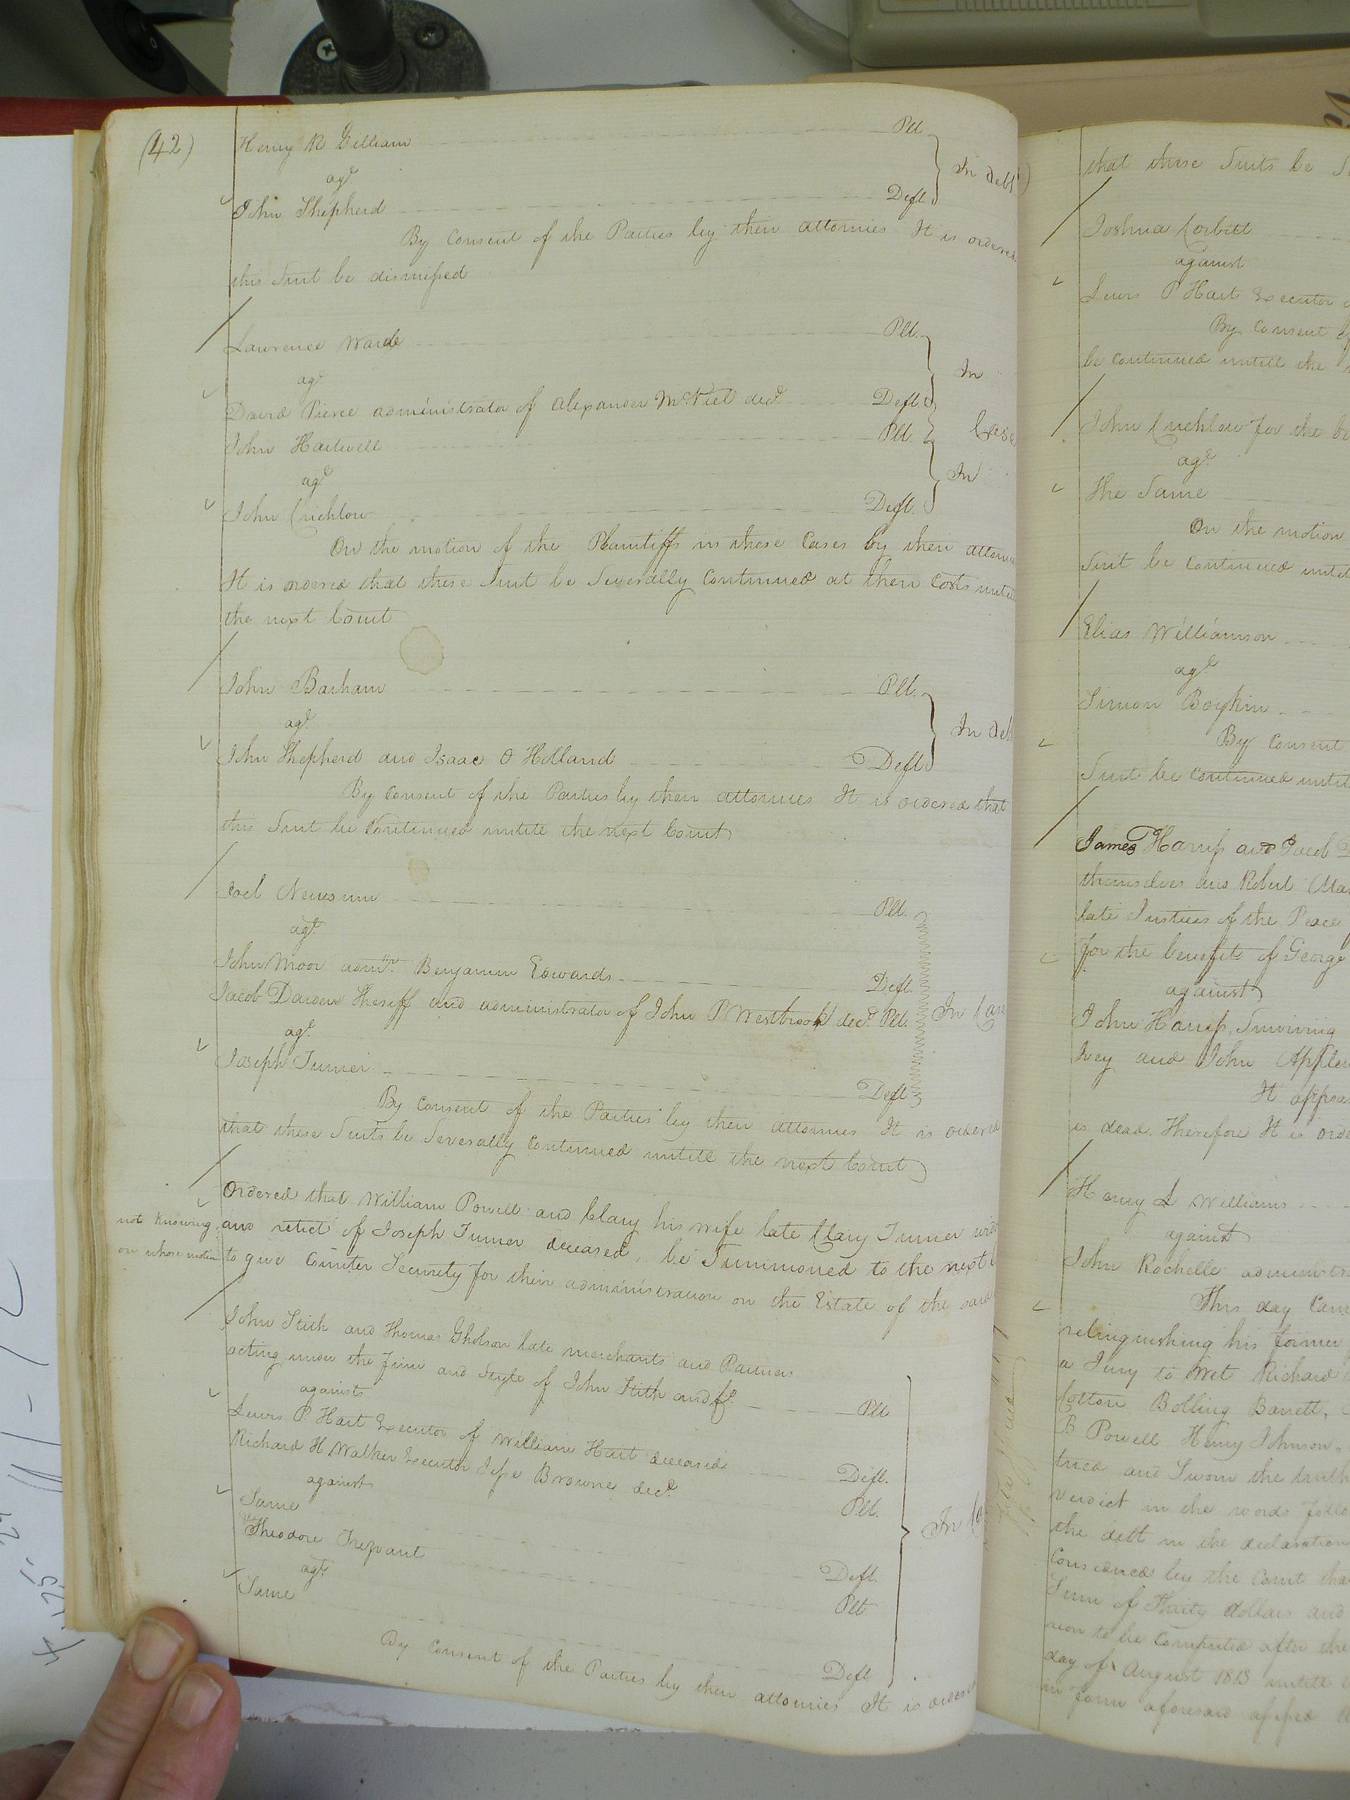 (42)
Henry R Gilliam Plt.
agt
John Shepherd Deft.
In debt
By Consent of the Parties by their attornies It is ordered
this Suit be dismissed
Lawrence Warde Plt.
agt
David Pierce administrator of Alexander McNiel decd Deft.
In
Case
John Hartwell Plt.
agt
John Crichlow Deft.
In
On the motion of the Plaintiffs in these Cases by their
It is ordered that these Suit be Severally Continued at their Costs
the next Court
John Barham Plt.
agt
John Shepherd and Isaac O Holland Deft.
In
By Consent of the Parties by their attornies It is ordered that
this Suit be Continued untile the next Court
Joel Newsum Plt.
agt
John Moor admr. Benjamin Edwards Deft.
Jacob Darden Sheriff and administrator of John P Westbrook decd. Plt.
In
agt
Joseph Turner Deft
By Consent of the Parties by their attornies It is ordered
that these Suits be Severally Continued untill the next Court
Ordered that William Powell and Clary his wife late Clary Turner
not knowing and relict of Joseph Turner deceased, be Summoned to the next
on whose motion to give Counter Security for their administration on the Estate of the said
John Stith and Thomas Gholson late merchants and Partners
acting under the Firm and Style of John Stith and Co. Plt
against
Lewis P Hart Executor of William Hart deceased Deft.
Richard H Walker Executor Jesse Browne decd. Plt.
against
Same Deft.
Theodore Trezvant Plt
agt.
Same Deft
In
By Consent of the Parties by their attornies It is ordered
that these Suits be
Joshua Corbitt
against
Lewis P Hart Executor
By Consent
be continued untill the
John Crichlow for the
agt
the Same
On the motion
Suit be Continued until
Elias Williamson
agt
Simon Boykin
By Consent
Suit be Continued until
James Harris and Jacob
themselves and Robert
late Justices of the Peace
for the benefit of George
against
John Harris, Surviving
Ivey and John
It
is dead. Therefore It is
Henry L Williams
against
John Rochelle
This day Came
relinquishing his former
a Jury to Wit Richard
Cotton Bolling Barrett,
B Powell Henry Johnson
tried and Sworn the truth
verdict in the words
the debt in the declaration
Considered by the Court that
Sum of Thirty dollars and
to be Computed after the
day of August 1813 untill
in form aforesaid